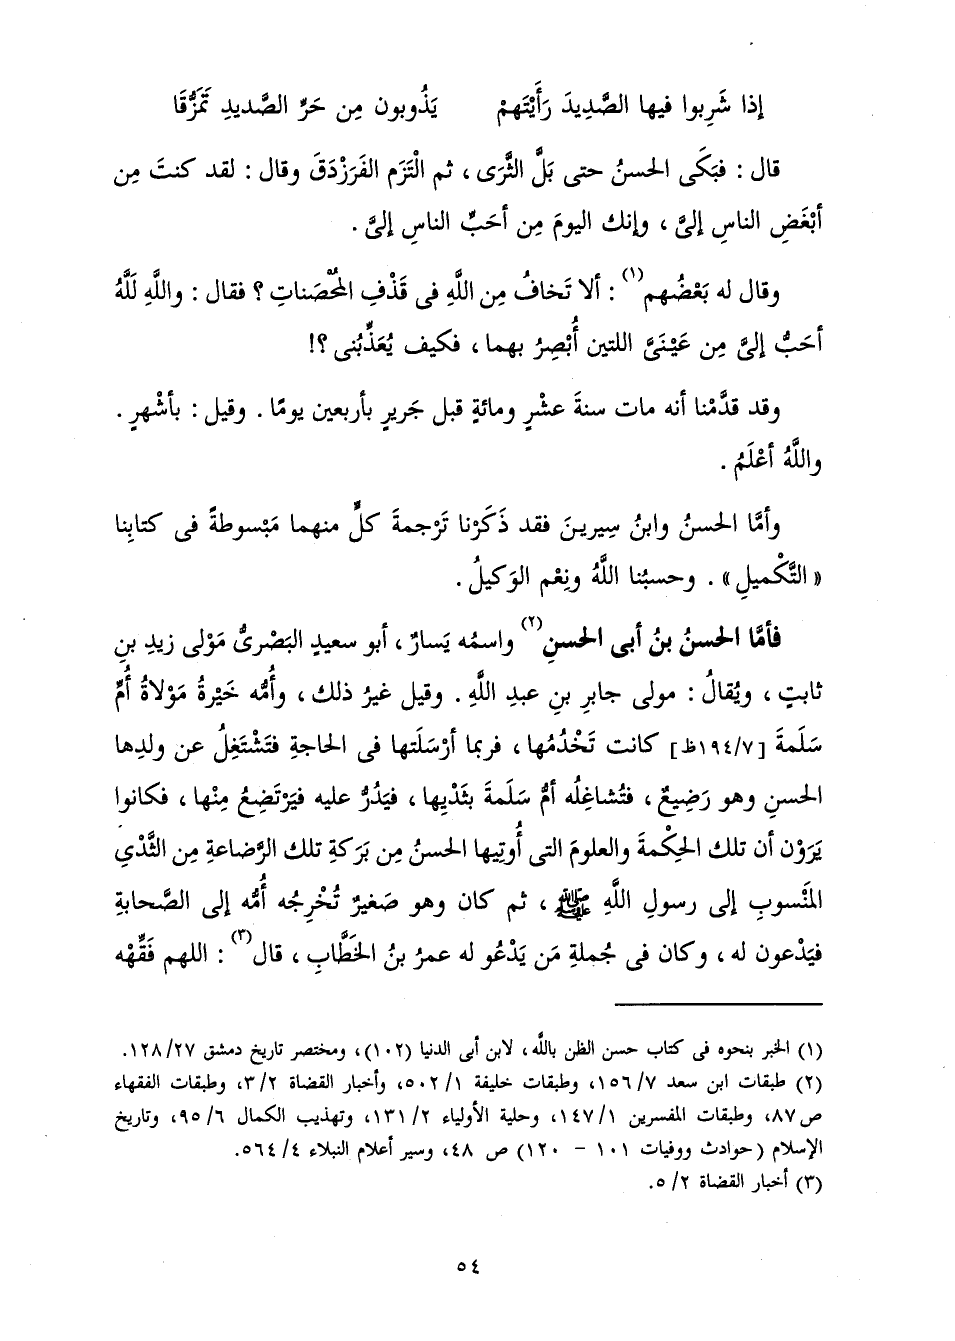 إذا شَرِبوا فيها الصَّدِيدَ رَأَيْتَهمْ يَذُوبون مِن حَرِّ الصَّديدِ تَمَزُّقَا
قال : فبَكَى الحسنُ حتى بَلَّ الثَّرَى ، ثم الْتَزَم الفَرَزْدَقَ وقال : لقد كنتَ مِن
أبْغَضِ الناسِ إلىَّ ، وإنك اليومَ مِن أحَبِّ الناسِ إلىَّ .
وقال له بَعْضُهم(١) : ألا تَخافُ مِن اللَّهِ فى قَذْفِ المُحْصَناتِ ؟ فقال : واللَّهِ لَلَّهُ
أحَبُّ إلىَّ مِن عَيْنَىَّ اللتين أُبْصِرُ بهما ، فكيف يُعَذِّبُنى ؟!
وقد قدَّمْنا أنه مات سنةَ عشْرٍ ومائةٍ قبل جَريرٍ بأربعين يومًا . وقيل : بأشْهرٍ .
واللَّهُ أعْلَمُ .
وأمَّا الحسنُ وابنُ سِيرينَ فقد ذَكَرْنا تَرْجمةَ كلٍّ منهما مَبْسوطةً فى كتابِنا
« التَّكْميلِ » . وحسبُنا اللَّهُ ونِعْم الوَكيلُ .
فأمَّا الحسنُ بنُ أبى الحسنِ(٢) واسمُه يَسارٌ ، أبو سعيدٍ البَصْرىُّ مَوْلى زيدِ بنِ
ثابتٍ ، ويُقالُ : مولى جابرِ بنِ عبدِ اللَّهِ . وقيل غيرُ ذلك ، وأُمُّه خَيْرةُ مَوْلاةُ أُمِّ
سَلَمةَ [١٩٤/٧ظ] كانت تَخْدُمُها ، فربما أرْسَلَتها فى الحاجةِ فتَشْتَغِلُ عن ولدِها
الحسنِ وهو رَضِيعٌ ، فتُشاغِلُه أمُّ سَلَمةَ بثَدْيِها ، فيَدُرُّ عليه فيَرْتَضِعُ مِنْها ، فكانوا
يَرَوْن أن تلك الحِكْمةَ والعلومَ التى أُوتِيها الحسنُ مِن بَرَكةِ تلك الرَّضاعةِ مِن الثَّدْيِ
المَنْسوبِ إلى رسولِ اللَّهِ ﷺ ، ثم كان وهو صَغيرٌ تُخْرِجُه أُمُّه إلى الصَّحابةِ
فيَدْعون له ، وكان فى جُملةِ مَن يَدْعُو له عمرُ بنُ الخَطَّابِ ، قال(٣) : اللهم فَقِّهْه
(١) الخبر بنحوه فى كتاب حسن الظن بالله، لابن أبى الدنيا (١٠٢)، ومختصر تاريخ دمشق ١٢٨/٢٧.
(٢) طبقات ابن سعد ١٥٦/٧، وطبقات خليفة ٥٠٢/١، وأخبار القضاة ٣/٢، وطبقات الفقهاء
ص٨٧، وطبقات المفسرين ١٤٧/١، وحلية الأولياء ١٣١/٢، وتهذيب الكمال ٩٥/٦، وتاريخ
الإسلام (حوادث ووفيات ١٠١ - ١٢٠) ص ٤٨، وسير أعلام النبلاء ٥٦٤/٤.
(٣) أخبار القضاة ٥/٢.
٥٤